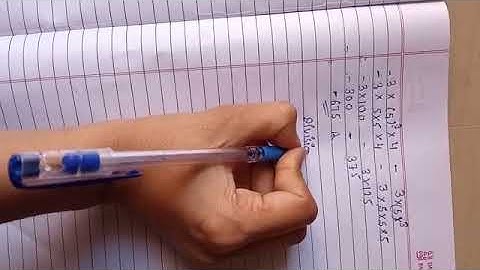 -3 × (5)² × 4 - 3(5)³
-3 × 5×5 × 4 - 3×5×5×5
-3×100 - 3×125
-300 - 375
-675 A